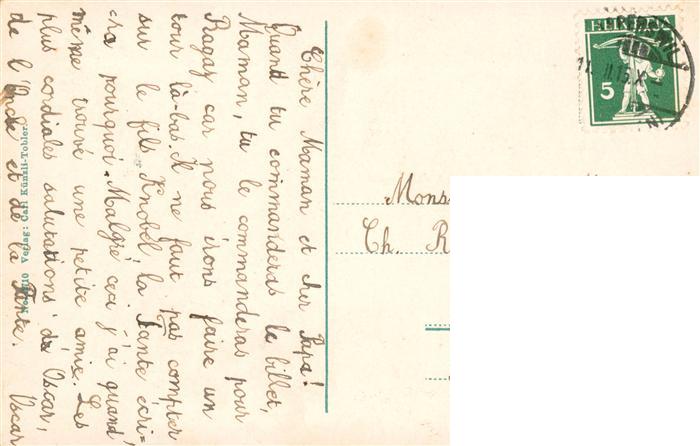 Chère Maman et cher Papa!
Quand tu commanderas le billet,
Maman, tu le commanderas pour
Ragaz car nous irons faire un
tour là-bas. Il ne faut pas compter
sur le fils Knobel, la Tante écri-
era pourquoi. Malgré ceci j'ai quand
même trouvé une petite amie. Les
plus cordiales salutations de Oscar,
de l'Oncle et de la Tante. Oscar
Verlag: Carl Künzli-Tobler
HELVETIA
5
Mons
Ch. R